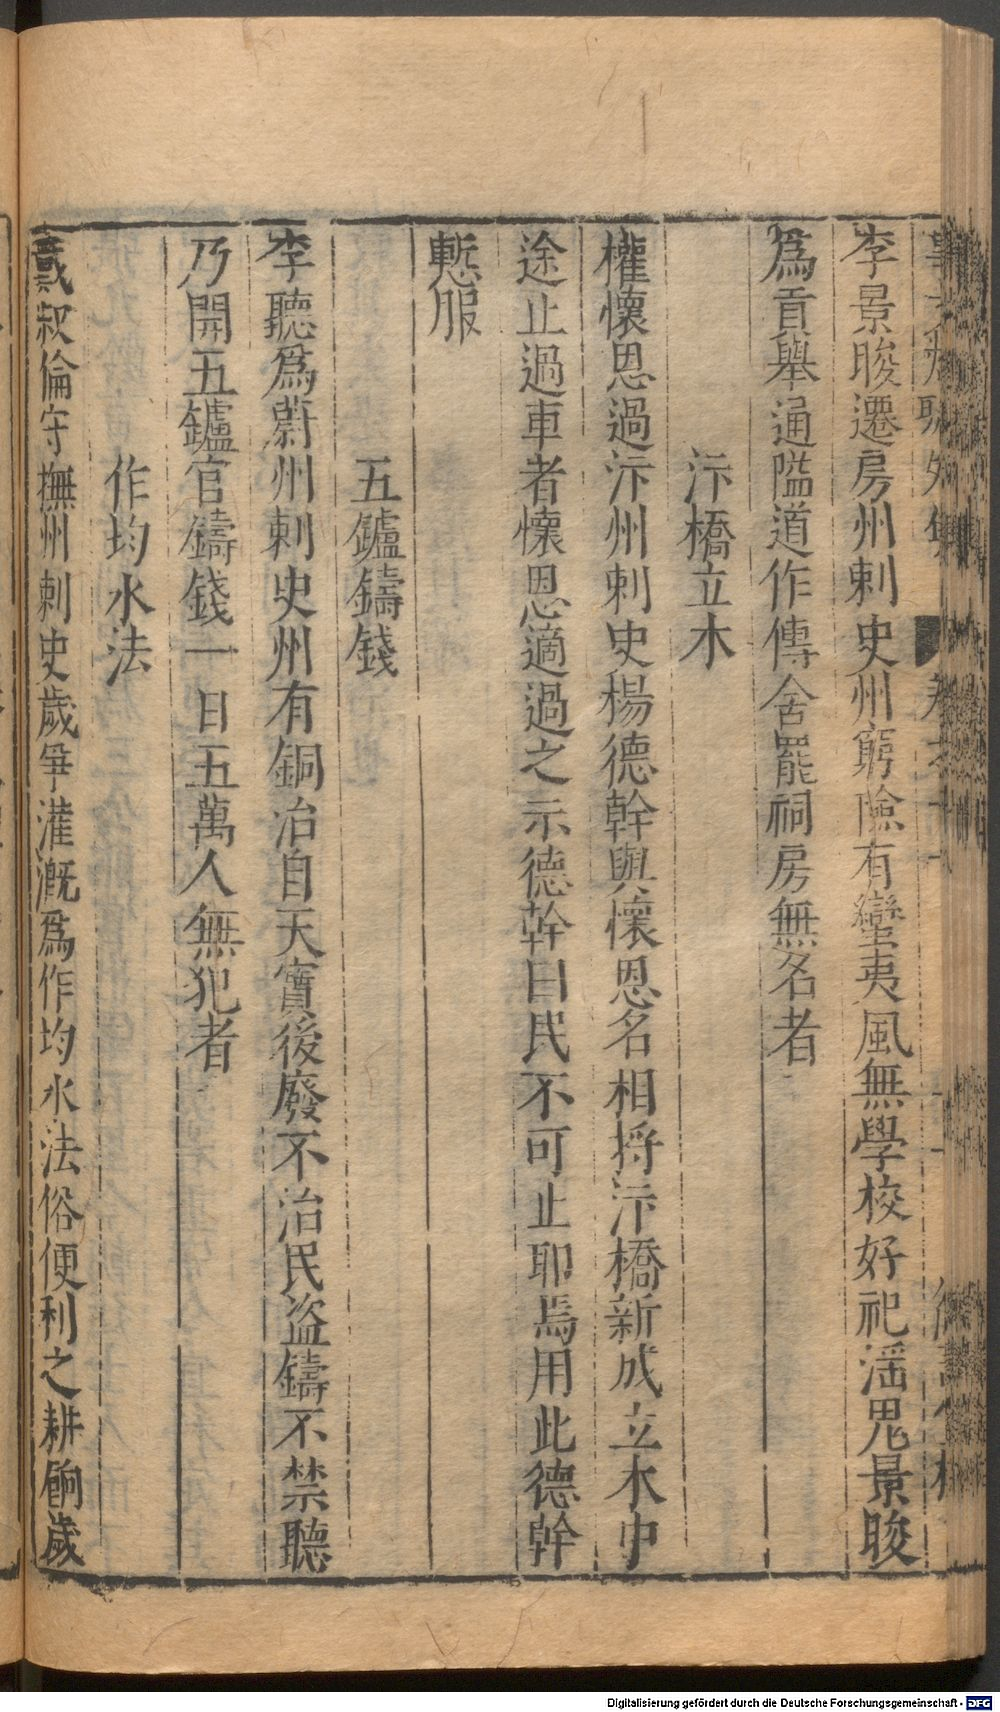 李景晙遷房州刺史州窮險有蠻夷風無學校好祀滛鬼景晙
爲貢舉通隘道作傳舍罷祠房無名者
汴橋立木
權懷恩過汴州刺史楊德幹與懷恩名相捋汴橋新成立木中
途止過車者懷恩適過之示德幹曰民不可止耶焉用此德幹
慙服
五鑪鑄錢
李聽爲蔚州刺史州有銅冶自天寶後廢不治民盗鑄不禁聽
乃開五鑪官鑄錢一日五萬人無犯者
作均水法
戴叔倫守撫州刺史歲爭灌漑爲作均水法俗便利之耕餉歲
Digitalisierung gefördert durch die Deutsche Forschungsgemeinschaft - DFG